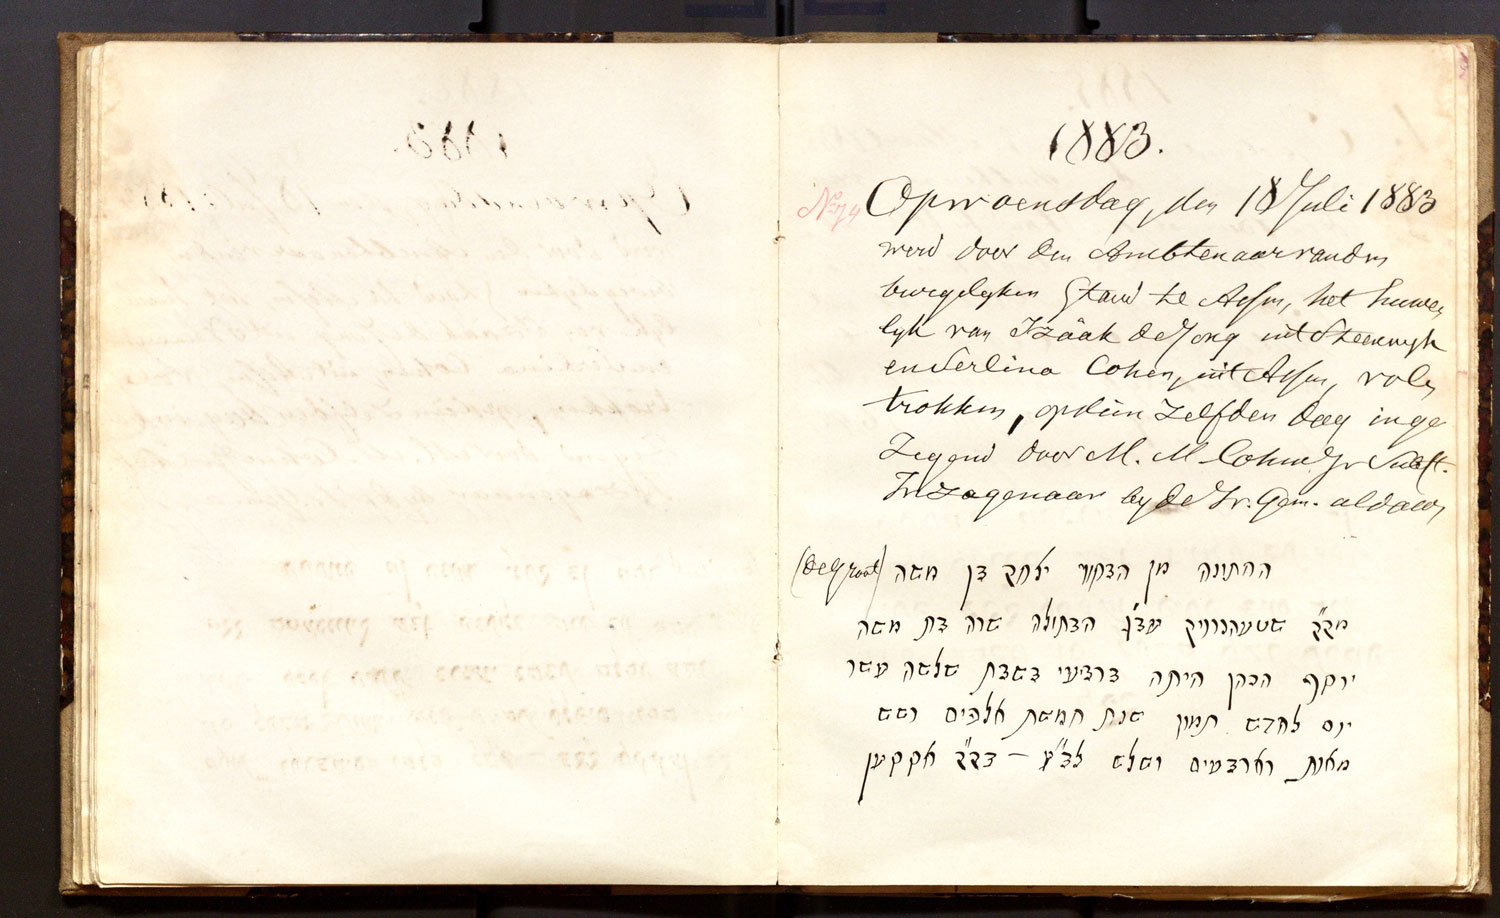 1883.
No 74 Op woensdag, den 18 Juli 1883
werd door den Ambtenaar van den
burgelyken Stand te Assen, het huwe
lyk van Izäak de Jong uit Steenwyk
en Serlina Cohen, uit Assen, vol
trokken, op dien zelfden dag inge
zegend door M. M. Cohen Jr Subst.
by de Isr. Gem. aldaar
(de Groot) החתונה מן הבחור יצחק בן משה
מק״ק שטעהנווייק עב״ג הבתולה שרה בת משה
יוקף הכהן היתה ברביעי בשבת שלשה עשר
יום לחדש תמוז שנת חמשת אלפים ושש
מאות וארבעים ושלש לב״ע — בק״ק אססען